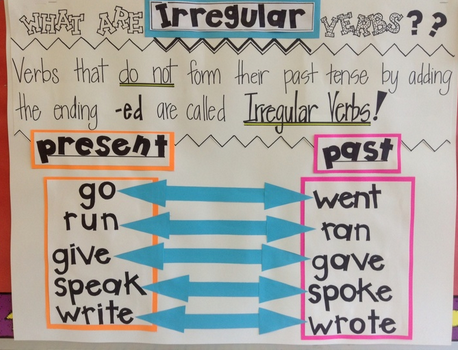 WHAT ARE Irregular VERBS??
Verbs that do not form their past tense by adding
the ending -ed are called Irregular Verbs!
present past
go went
run ran
give gave
speak spoke
write wrote